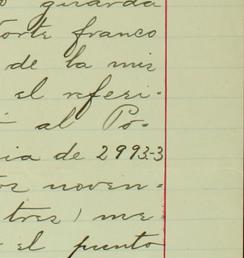 guarda
orte franco
de la mis
el referi-
al Po-
ia de 2993-3
tos noven-
tres) me
el punto